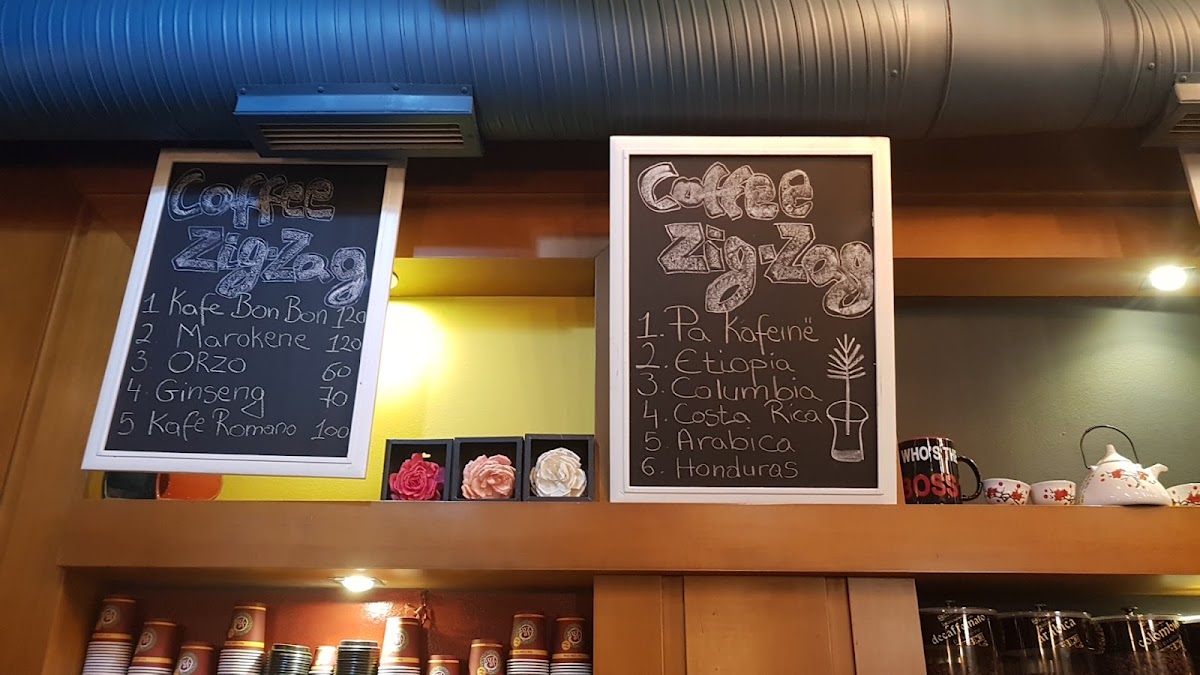 Coffee
Zig-Zag
1 Kafe Bon Bon 120
2. Marokene 120
3 ORZO 60
4. Ginseng 70
5 Kafe Romano 100
Coffee
Zig-Zag
1. Pa Kafeinë
2. Etiopia
3. Columbia
4. Costa Rica
5 Arabica
6. Honduras
WHO'S THE
BOSS
decaffeinato
Arabica
colombia